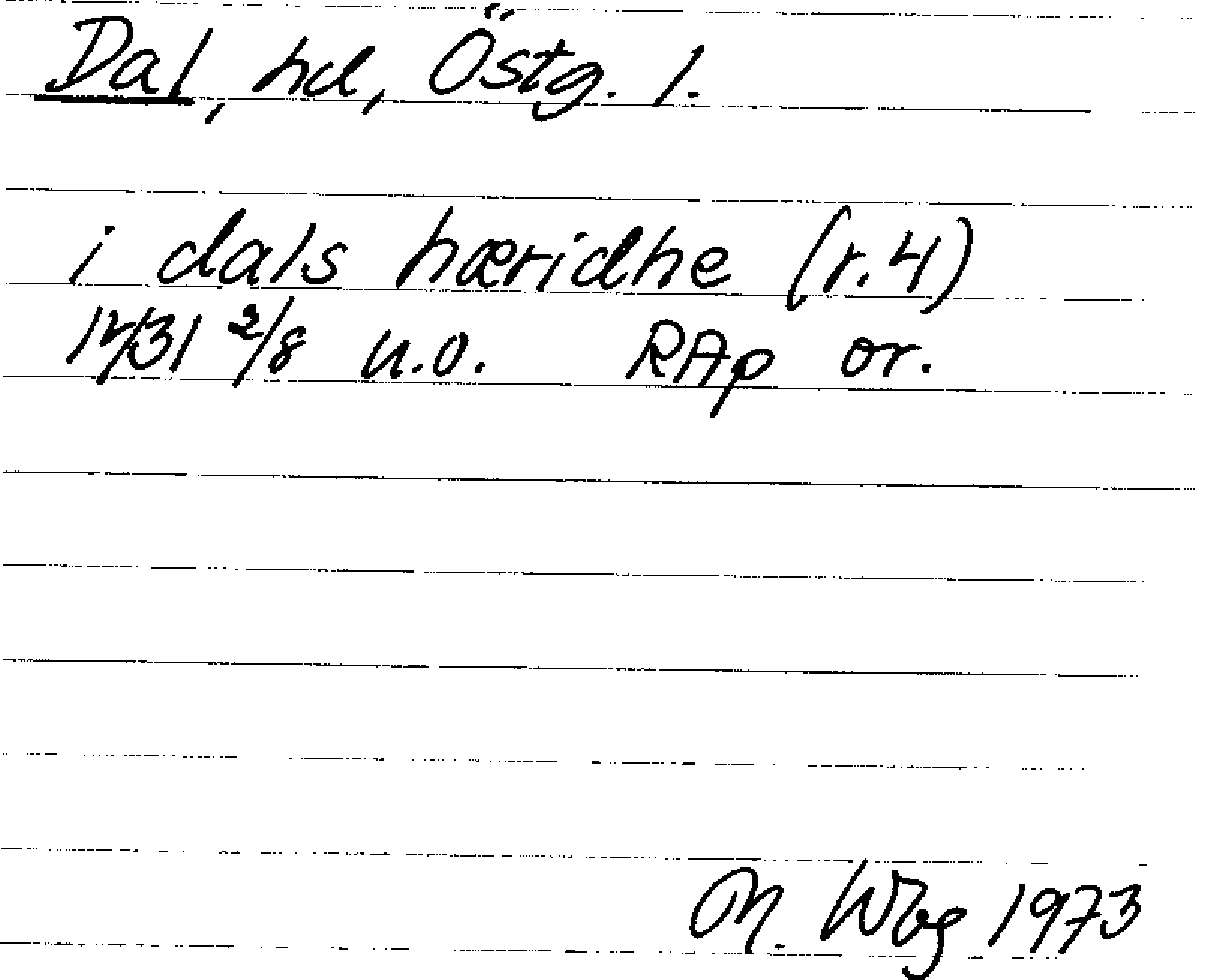 Dal, hd, Östg. l.
i dals hæridhe (r.4)
1431 2/8 u.o. RAp or.
M. Wbg 1973